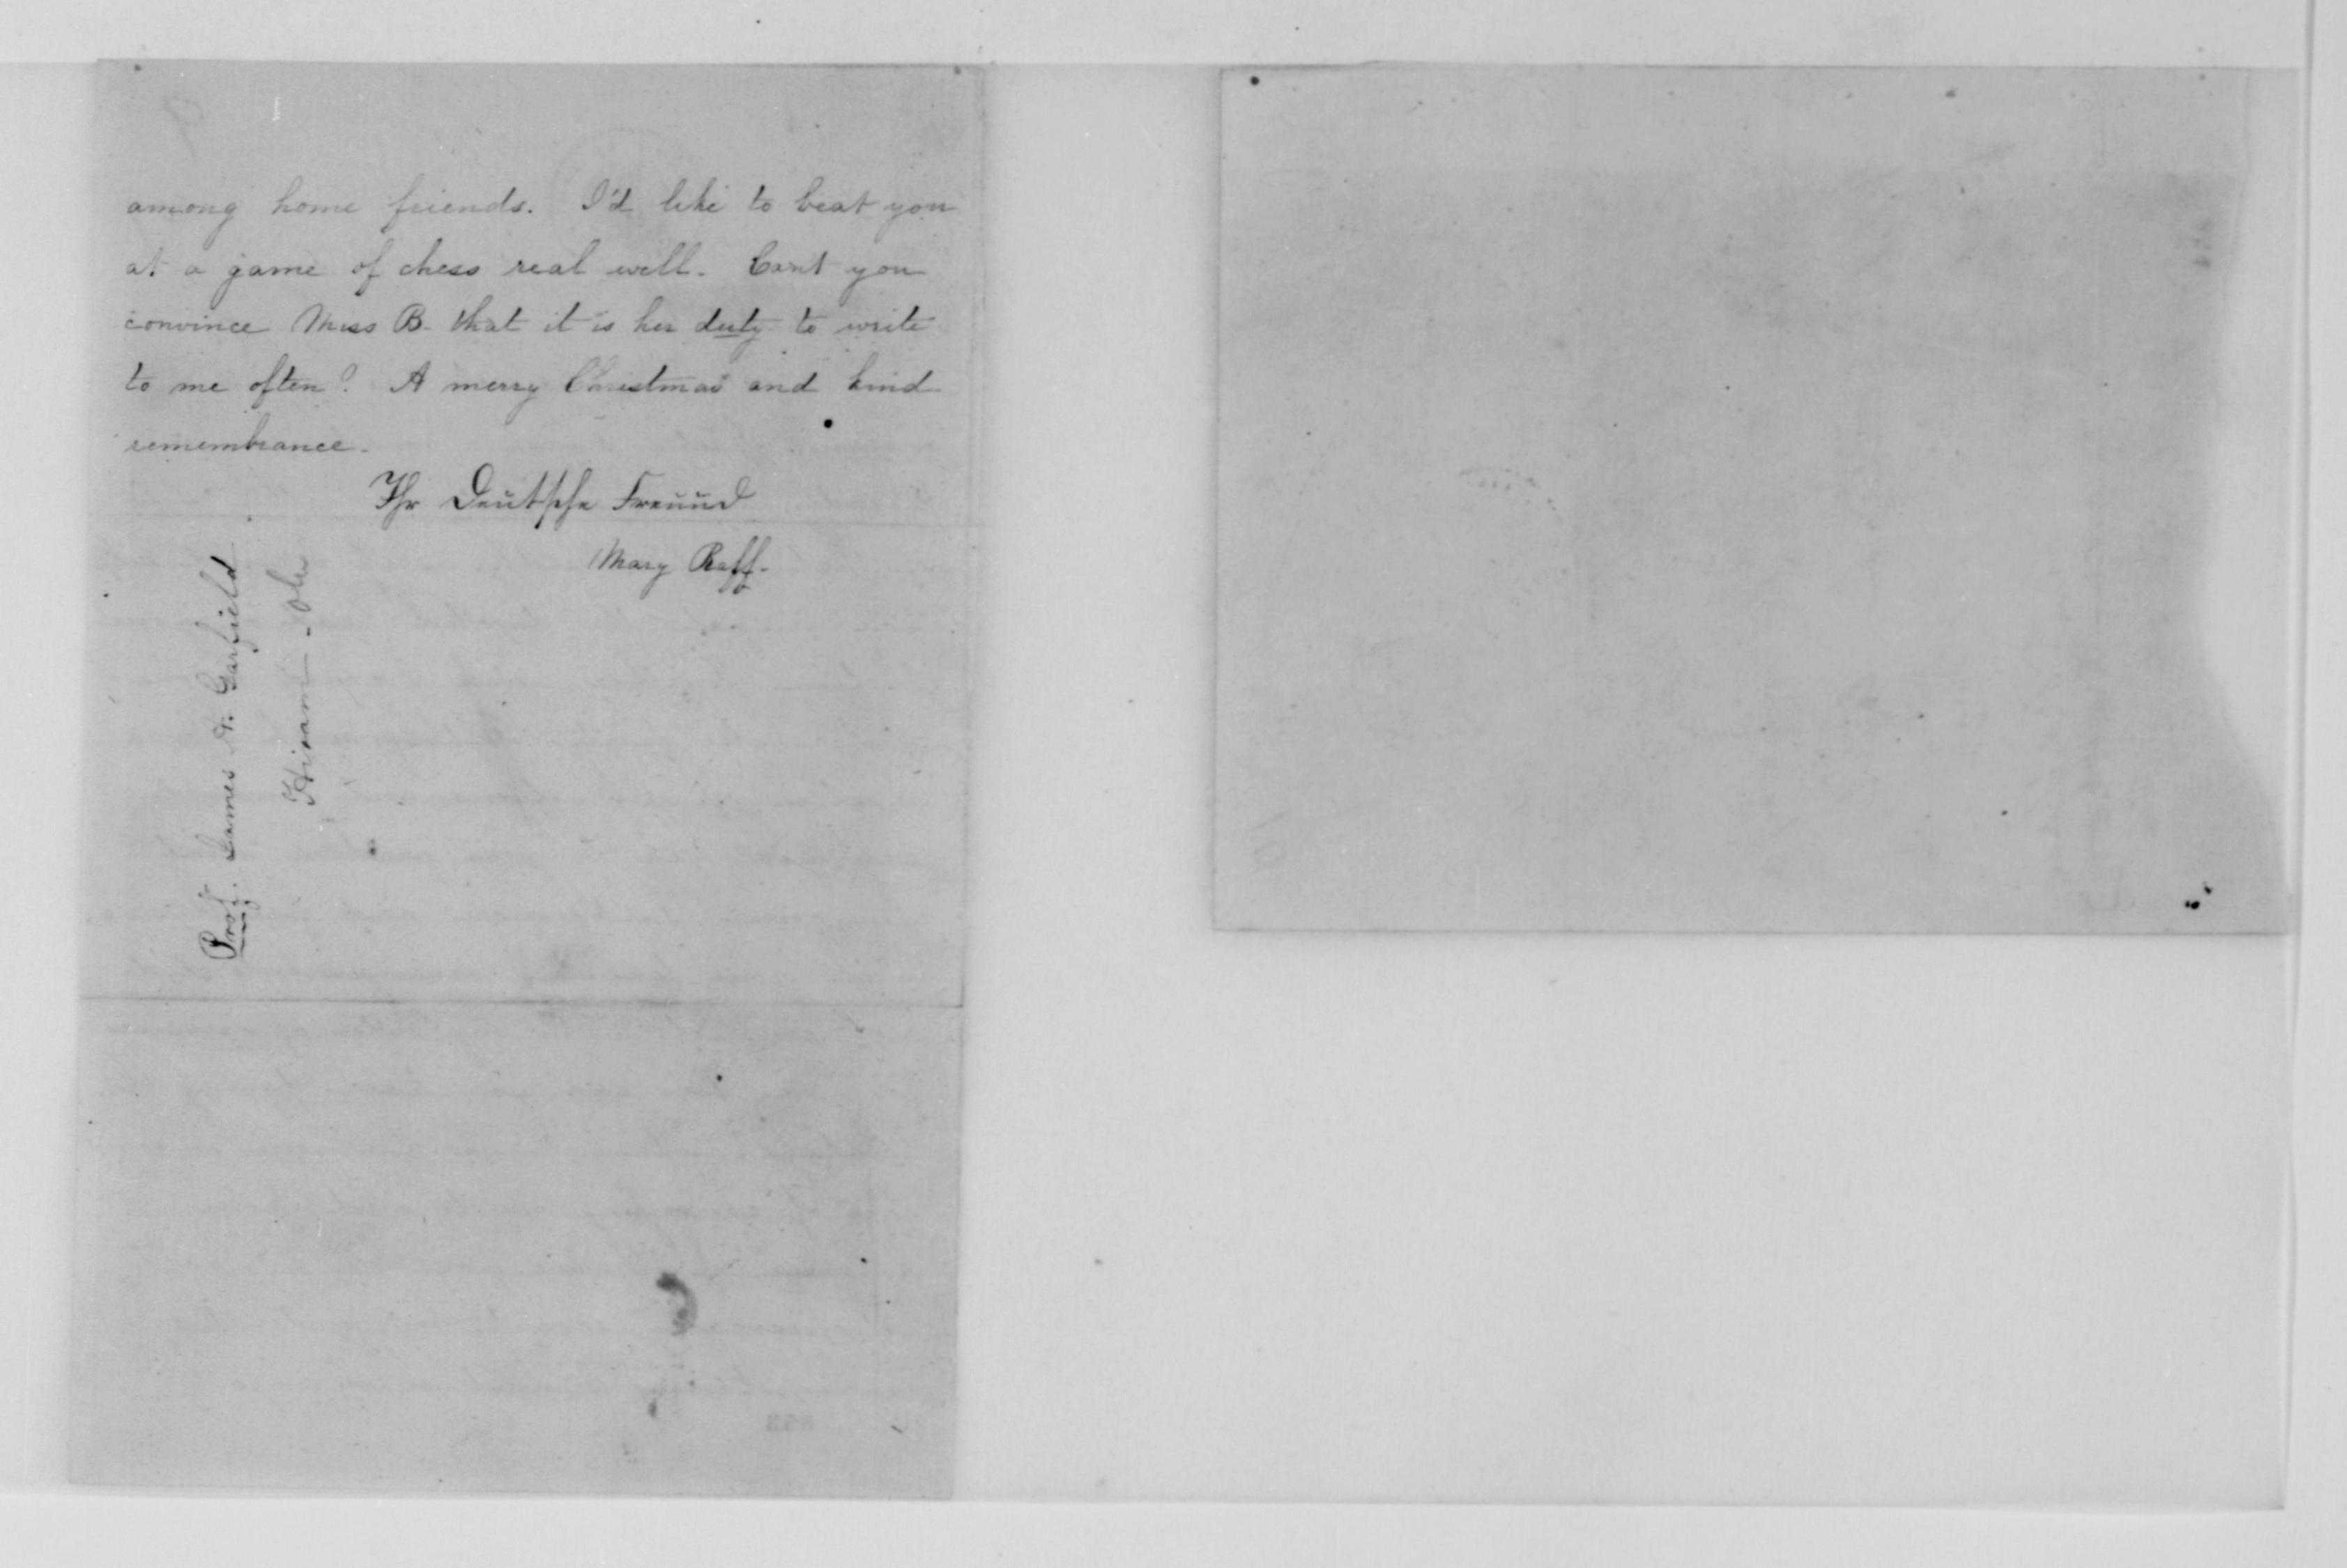 among home friends. I'd like to beat you
at a game of chess real well. Can't you
convince Miss B. that it is her duty to write
to me often? A merry Christmas and kind
remembrance.
Ihr Deutsche Freund
Mary Raff.
Prof. James A. Garfield
Hiram - Ohio